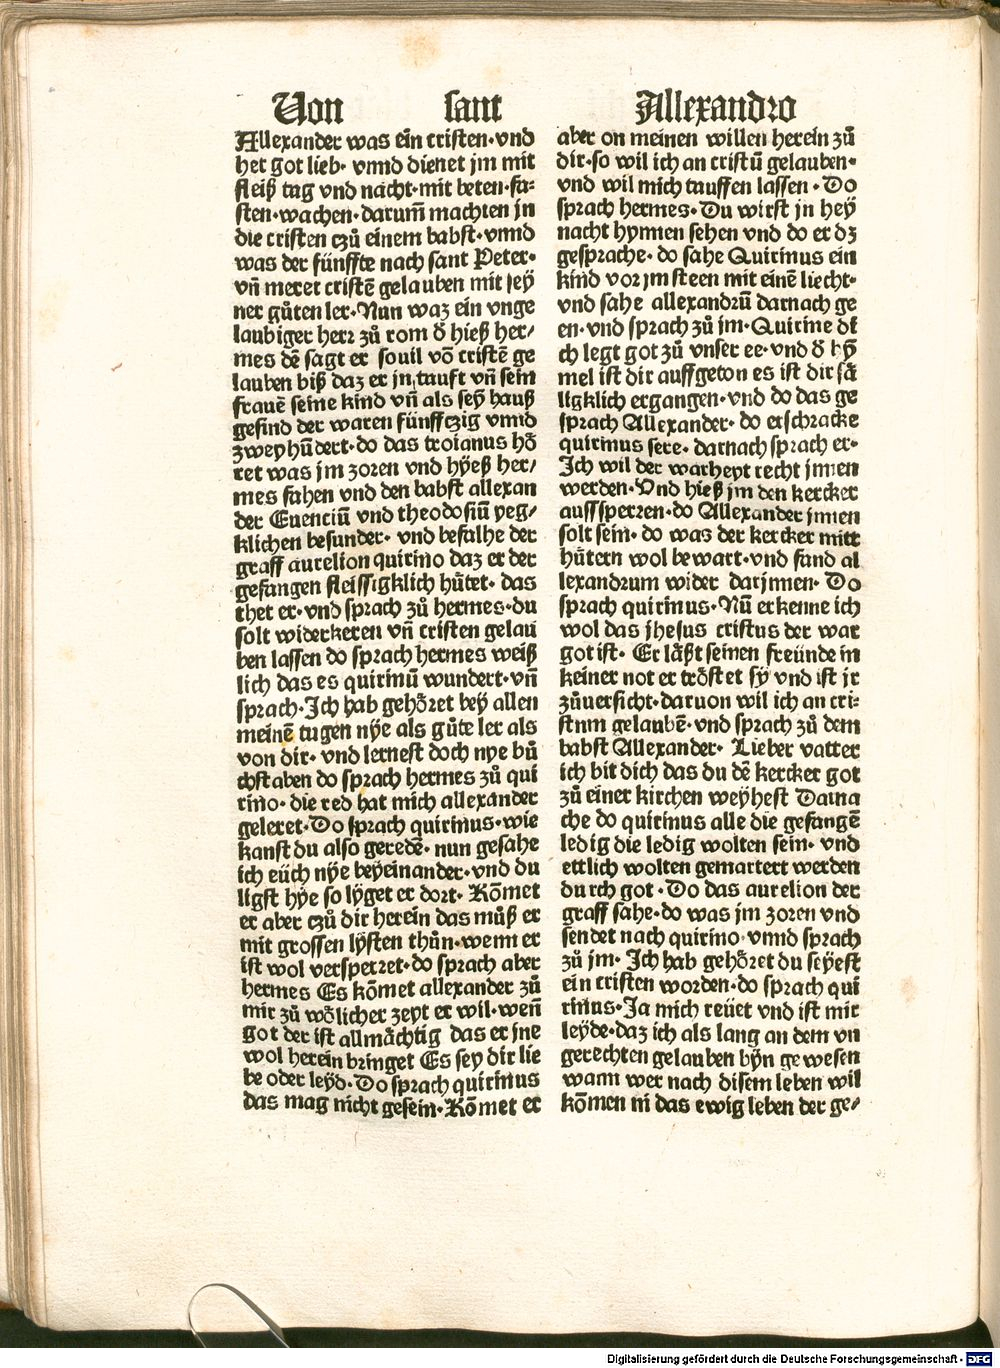 Von sant Allexandro
Allexander was ein cristen·vnd
het got lieb· vnnd dienet jm mit
fleiß tag vnd nacht·mit beten·fa⸗
sten·wachen·darum̄ machten jn
die cristen czů einem babst·vnnd
was der fünffte nach sant Peter·
vn̄ meret cristē gelauben mit sey
ner gůten ler·Nun waz ein vnge
laubiger herr zů rom d̓ hieß her⸗
mes dē sagt er souil vō cristē ge
lauben biß daz er jn tauft vn̄ sein
frauē seine kind vn̄ als seÿ hauß
gesind der waren fünffczig vnnd
zweyhūdert·do das troianus hö
ret was jm zoren vnd hÿeß her⸗
mes fahen vnd den babst allexan
der Euenciū vnd theodosiū yeg⸗
klichen besunder· vnd befalhe der
graff aurelion quirino daz er der
gefangen fleissigklich hůtet· das
thet er·vnd sprach zů hermes·du
solt widerkeren vn̄ cristen gelau
ben lassen do sprach hermes weiß
lich das es quirinū wundert·vn̄
sprach·Ich hab gehöret beÿ allen
meinē tagen nÿe als gůte ler als
von dir·vnd lernest doch nye bů
chstaben do sprach hermes zů qui
rino·die red hat mich allexander
geleret·Do sprach quirinus·wie
kanst du also geredē· nun gesahe
ich eüch nÿe beÿeinander·vnd du
ligst hÿe so lÿget er dort· Kōmet
er aber czů dir herein das můß er
mit grossen lÿsten thůn·wenn er
ist wol versperret·do sprach aber
hermes Es kōmet allexander zů
mir zů wölicher zeyt er wil·wen̄
got der ist allmächtig das er jne
wol herein bringet Es sey dir lie
be oder leÿd·Do sprach quirinus
das mag nicht gesein·Kōmet er
aber on meinen willen herein zů
dir·so wil ich an cristū gelauben·
vnd wil mich tauffen lassen·Do
sprach hermes·Du wirst jn heÿ
nacht hynnen sehen vnd do er dz
gesprache·do sahe Quirinus ein
kind vor jm steen mit einē liecht·
vnd sahe allexandrū darnach ge
en·vnd sprach zů jm·Quirine di
ch legt got zů vnser ee·vnd d̓ hÿ
mel ist dir auffgeton es ist dir sä
ligklich ergangen·vnd do das ge
sprach Allexander· do erschracke
quirinus sere· darnach sprach er·
Ich wil der warheyt recht jnnen
werden·Vnd hieß jm den kercker
auffsperren·do Allexander jnnen
solt sein· do was der kercker mitt
hůtern wol bewart·vnd fand al
lexandrum wider darjnnen· Do
sprach quirinus·Nū erkenne ich
wol das jhesus cristus der war
got ist· Er läßt seinen freünde in
keiner not er tröstet sÿ vnd ist jr
zůuersicht·daruon wil ich an cri⸗
stum gelaubē·vnd sprach zů dem
babst Allexander· Lieber vatter
ich bit dich das du dē kercker got
zů einer kirchen weÿhest Darna
che do quirinus alle die gefangē
ledig die ledig wolten sein· vnd
ettlich wolten gemartert werden
durch got·Do das aurelion der
graff sahe·do was jm zoren vnd
sendet nach quirino·vnnd sprach
zů jm· Ich hab gehöret du seÿest
ein cristen worden·do sprach qui
rinus·Ja mich reüet vnd ist mir
leÿde·daz ich als lang an dem vn
gerechten gelauben bÿn gewesen
wann wer nach disem leben wil
kōmen in das ewig leben der ge⸗
Digitalisierung gefördert durch die Deutsche Forschungsgemeinschaft - DFG